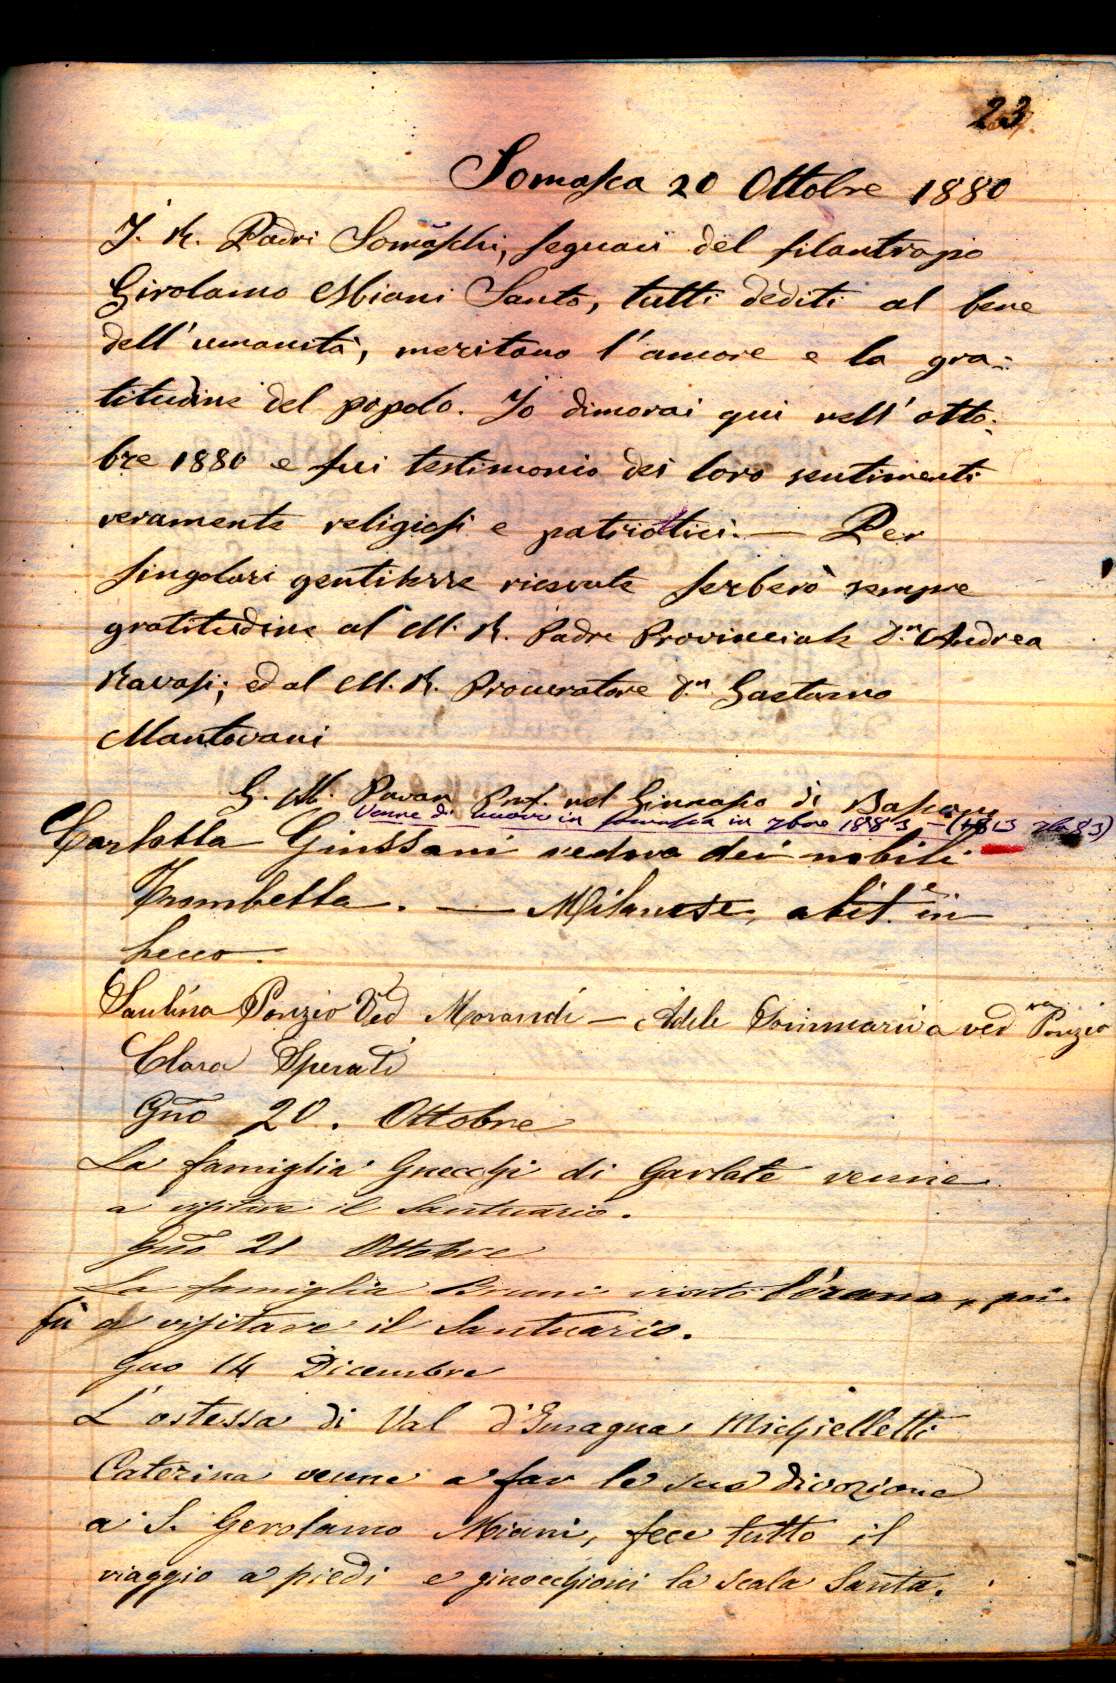 23
Somasca 20 Ottobre 1880
I. R. Padri Somaschi, seguaci del filantropo
Girolamo Miani Santo, tutti dediti al bene
dell'umanità, meritano l'amore e la gra-
titudine del popolo. Io dimorai qui nell'otto-
bre 1880 e fui testimonio dei loro sentimenti
veramente religiosi e patriottici. — Per
singolari gentilezze ricevute serberò sempre
gratitudine al M. R. Padre Provinciale D.n Andrea
Ravasi; ed al M. R. Procuratore D.n Gaetano
Mantovani
G. M. Pavan Prof. nel Ginnasio di
Venne di nuovo in Somasca in 7bre 1883
Carlotta Giussani vedova dei nobili
Trombetta. — Milanese, abit.e in
Lecco.
Paolina Ponzio Ved Morandi — Adele Sommariva ved Ponzio
Clara Sperati
Gno 20. Ottobre
La famiglia Gnecchi di Garlate venne
a visitare il Santuario.
Gno 21 Ottobre
La famiglia Bruni
fù a visitare il Santuario.
Gno 14 Dicembre
L'ostessa di Val d'Imagna Michielletti
Caterina venne a far la sua divozione
a S. Gerolamo Miani, fece tutto il
viaggio a piedi e ginocchioni la Scala Santa.